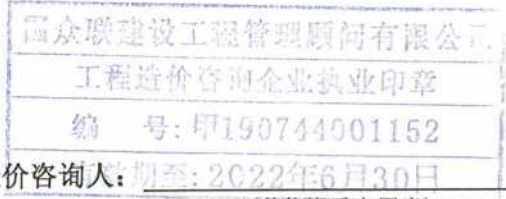 国众联建设工程管理顾问有限公司
工程造价咨询企业执业印章
编 号:甲190744001152
有效期至:2022年6月30日
价咨询人: